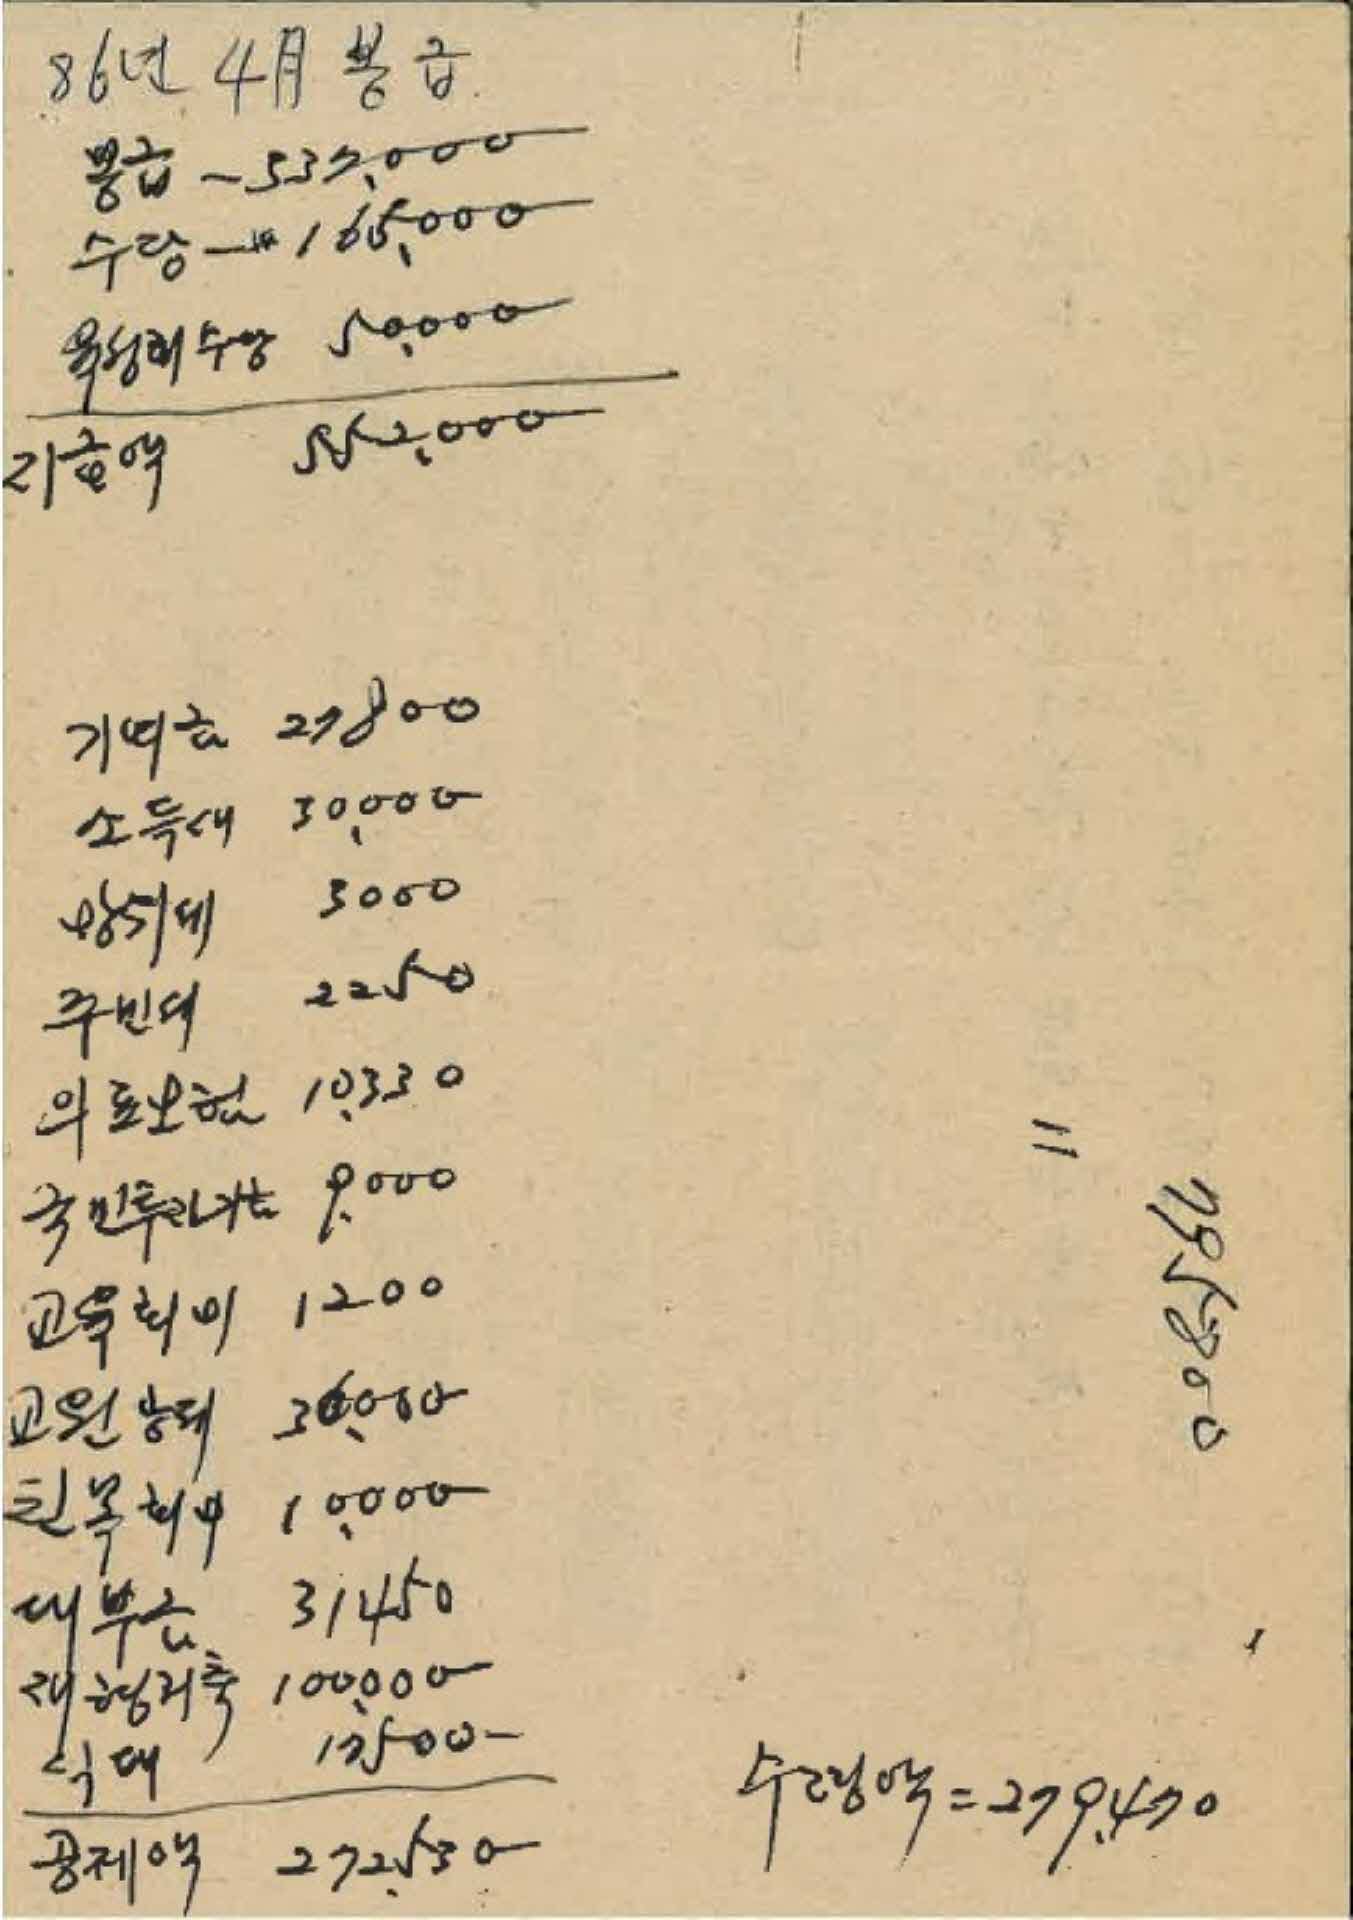 86년 4月 봉급
봉급 ~ 337,000
수당 — 〃 165,000
육성회수당 50,000
지급액 552,000
기여금 27800
소득세 30,000
방위세 3000
주민세 2250
의료보험 10,330
국민투자기금 9,000
교육회비 1200
교원공제 30,000
친목회비 10,000
대부금 31450
재형저축 100,000
식대 17500-
공제액 272,530
수령액 = 279,470